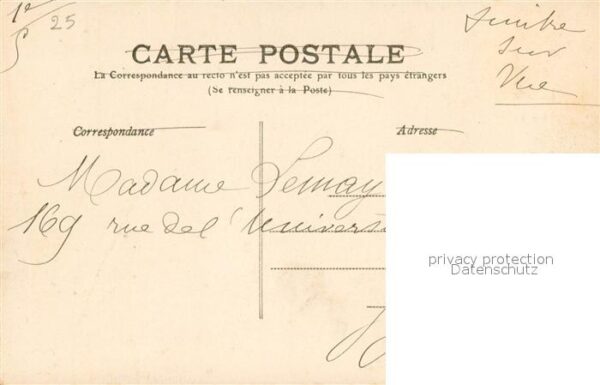 25
CARTE POSTALE
La Correspondance au recto n'est pas acceptée par tous les pays étrangers
(Se renseigner à la Poste)
sur
Vue
Correspondance
Adresse
Madame Lemay
169 rue de l'Univers
privacy protection
Datenschutz